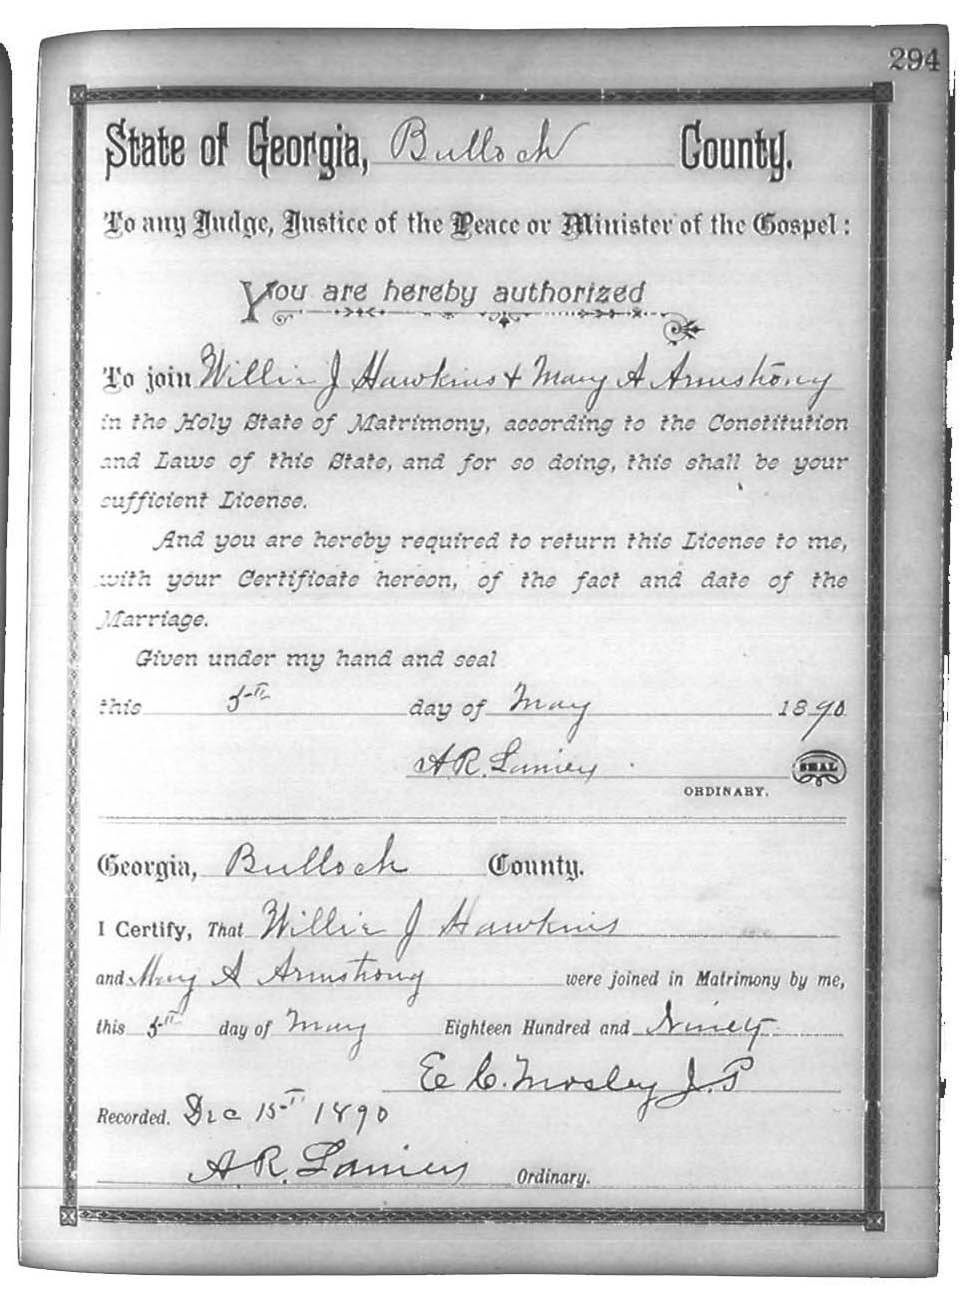 294
State of Georgia, Bulloch County.
To any Judge, Justice of the Peace or Minister of the Gospel:
You are hereby authorized
To join Willie J Hawkins & Mary A Armstrong
in the Holy State of Matrimony, according to the Constitution
and Laws of this State, and for so doing, this shall be your
sufficient License.
And you are hereby required to return this License to me,
with your Certificate hereon, of the fact and date of the
Marriage.
Given under my hand and seal
this 5th day of May 1890
A. R. Lanier SEAL
ORDINARY.
Georgia, Bulloch County.
I Certify, That Willie J Hawkins
and Mary A Armstrong were joined in Matrimony by me,
this 5th day of May Eighteen Hundred and Ninety
E C. Mosley J. P
Recorded. Dec 15th 1890
A. R. Lanier Ordinary.